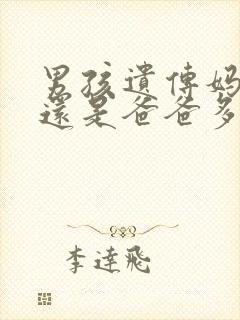 男孩遺傳媽
還是爸爸多
李達飛